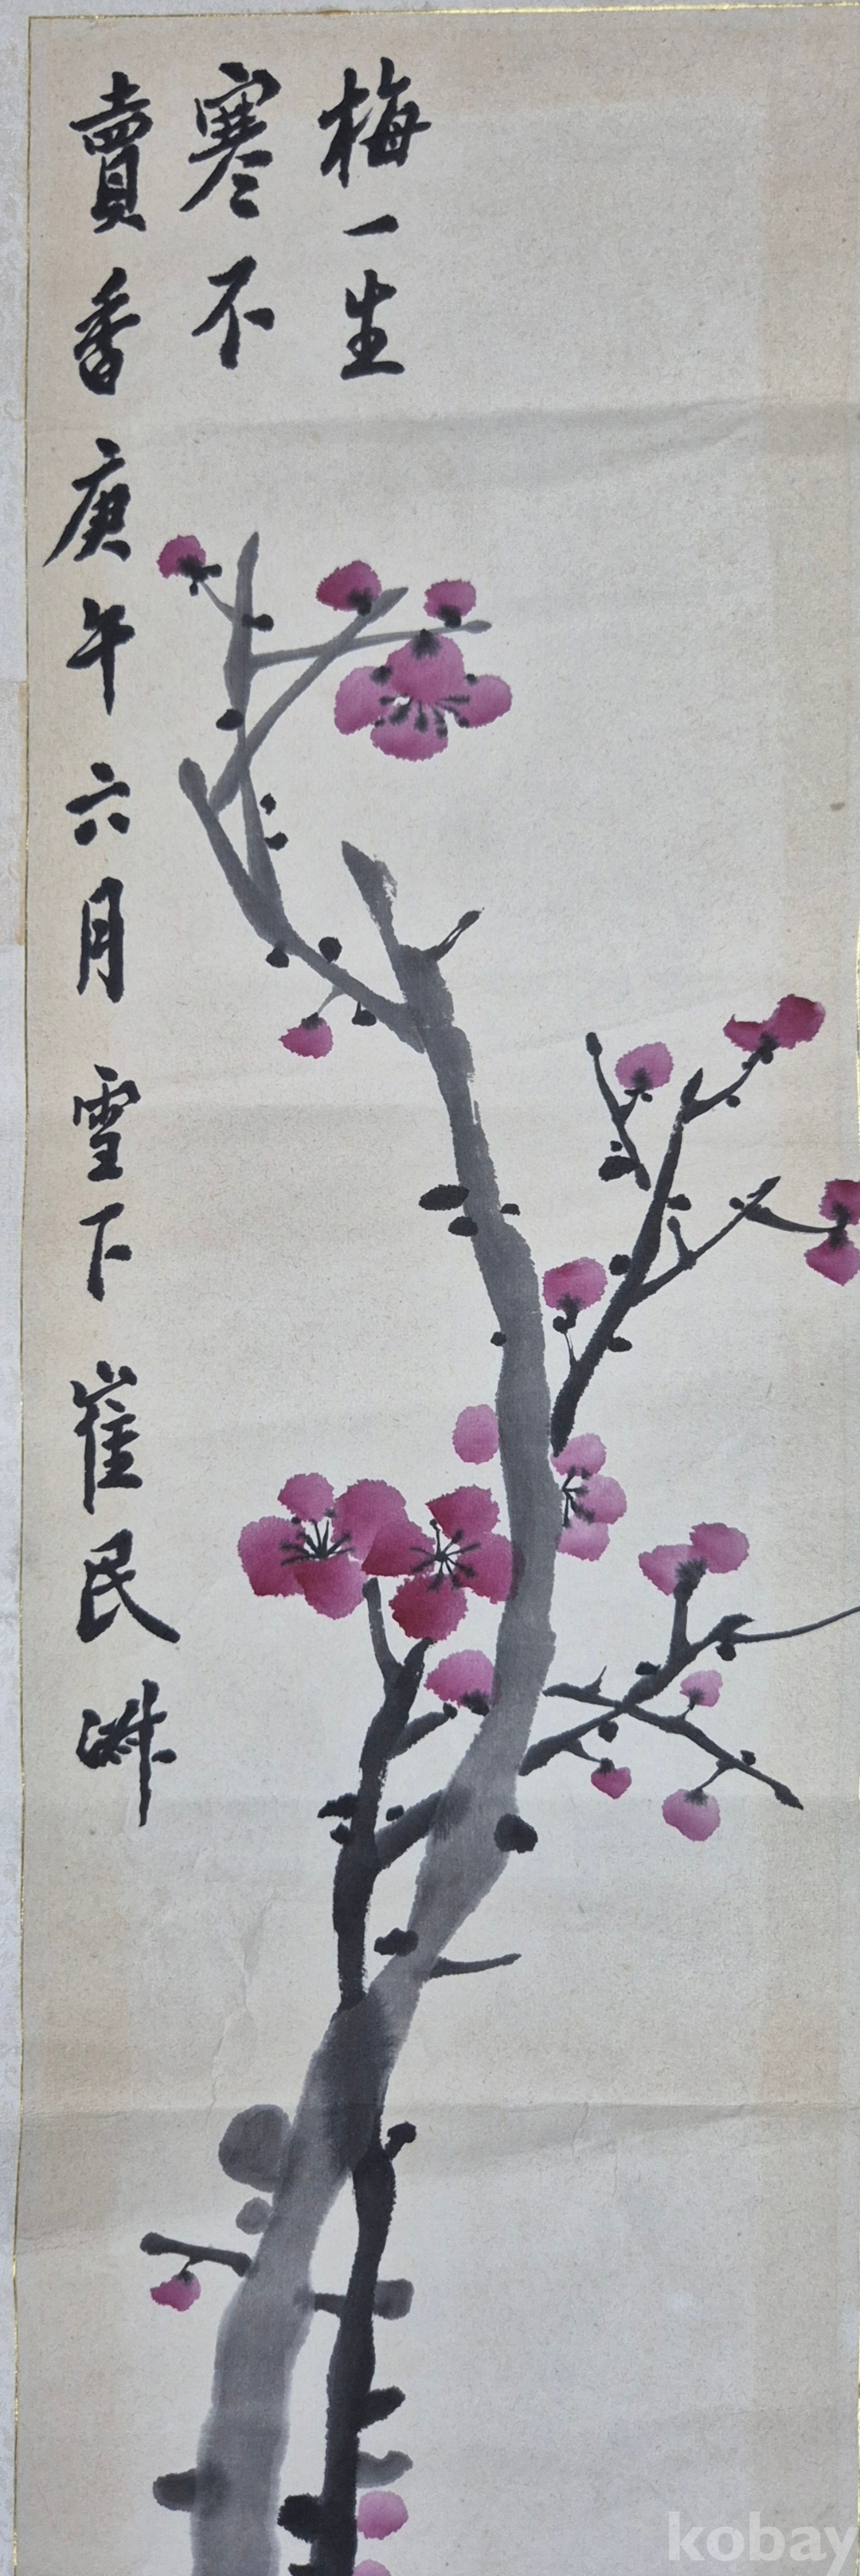 梅一生
寒不
賣香庚午六月雪下崔民
kobay